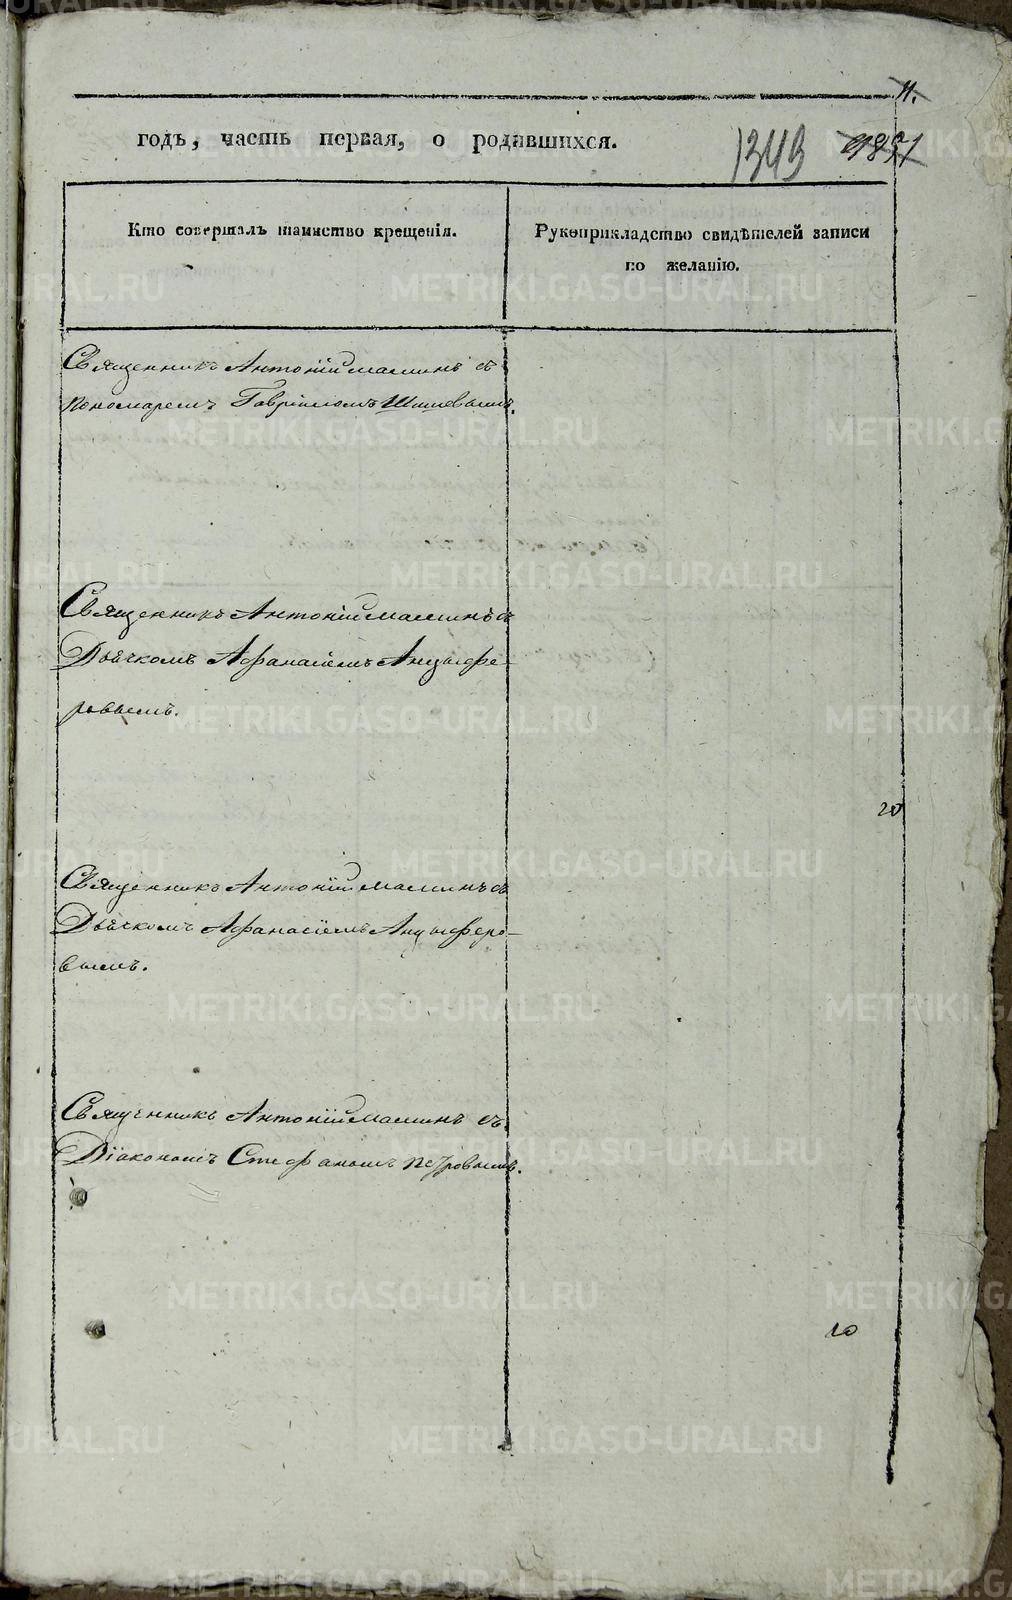 11.
годъ, часть первая, о родившихся.
1343 1851
Кто совершалъ таинство крещенія.
Рукоприкладство свидѣтелей записи
по желанію.
Священникъ Антоній Маминъ съ
Пономаремъ Гавріиломъ Шишевымъ.
Священникъ Антоній Маминъ съ
Дьячкомъ Афанасіемъ Анцыфе-
ровымъ.
20
Священникъ Антоній Маминъ съ
Дьячкомъ Афанасіемъ Анцыферо-
вымъ.
Священникъ Антоній Маминъ съ
Діакономъ Стефаномъ Петровымъ.
20
METRIKI.GASO-URAL.RU